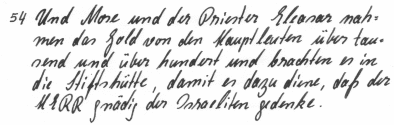 54 Und Mose und der Priester Eleasar nah-
men das Gold von den Hauptleuten über tau-
send und über hundert und brachten es in
die Stiftshütte, damit es dazu diene, daß der
HERR gnädig der Israeliten gedenke.